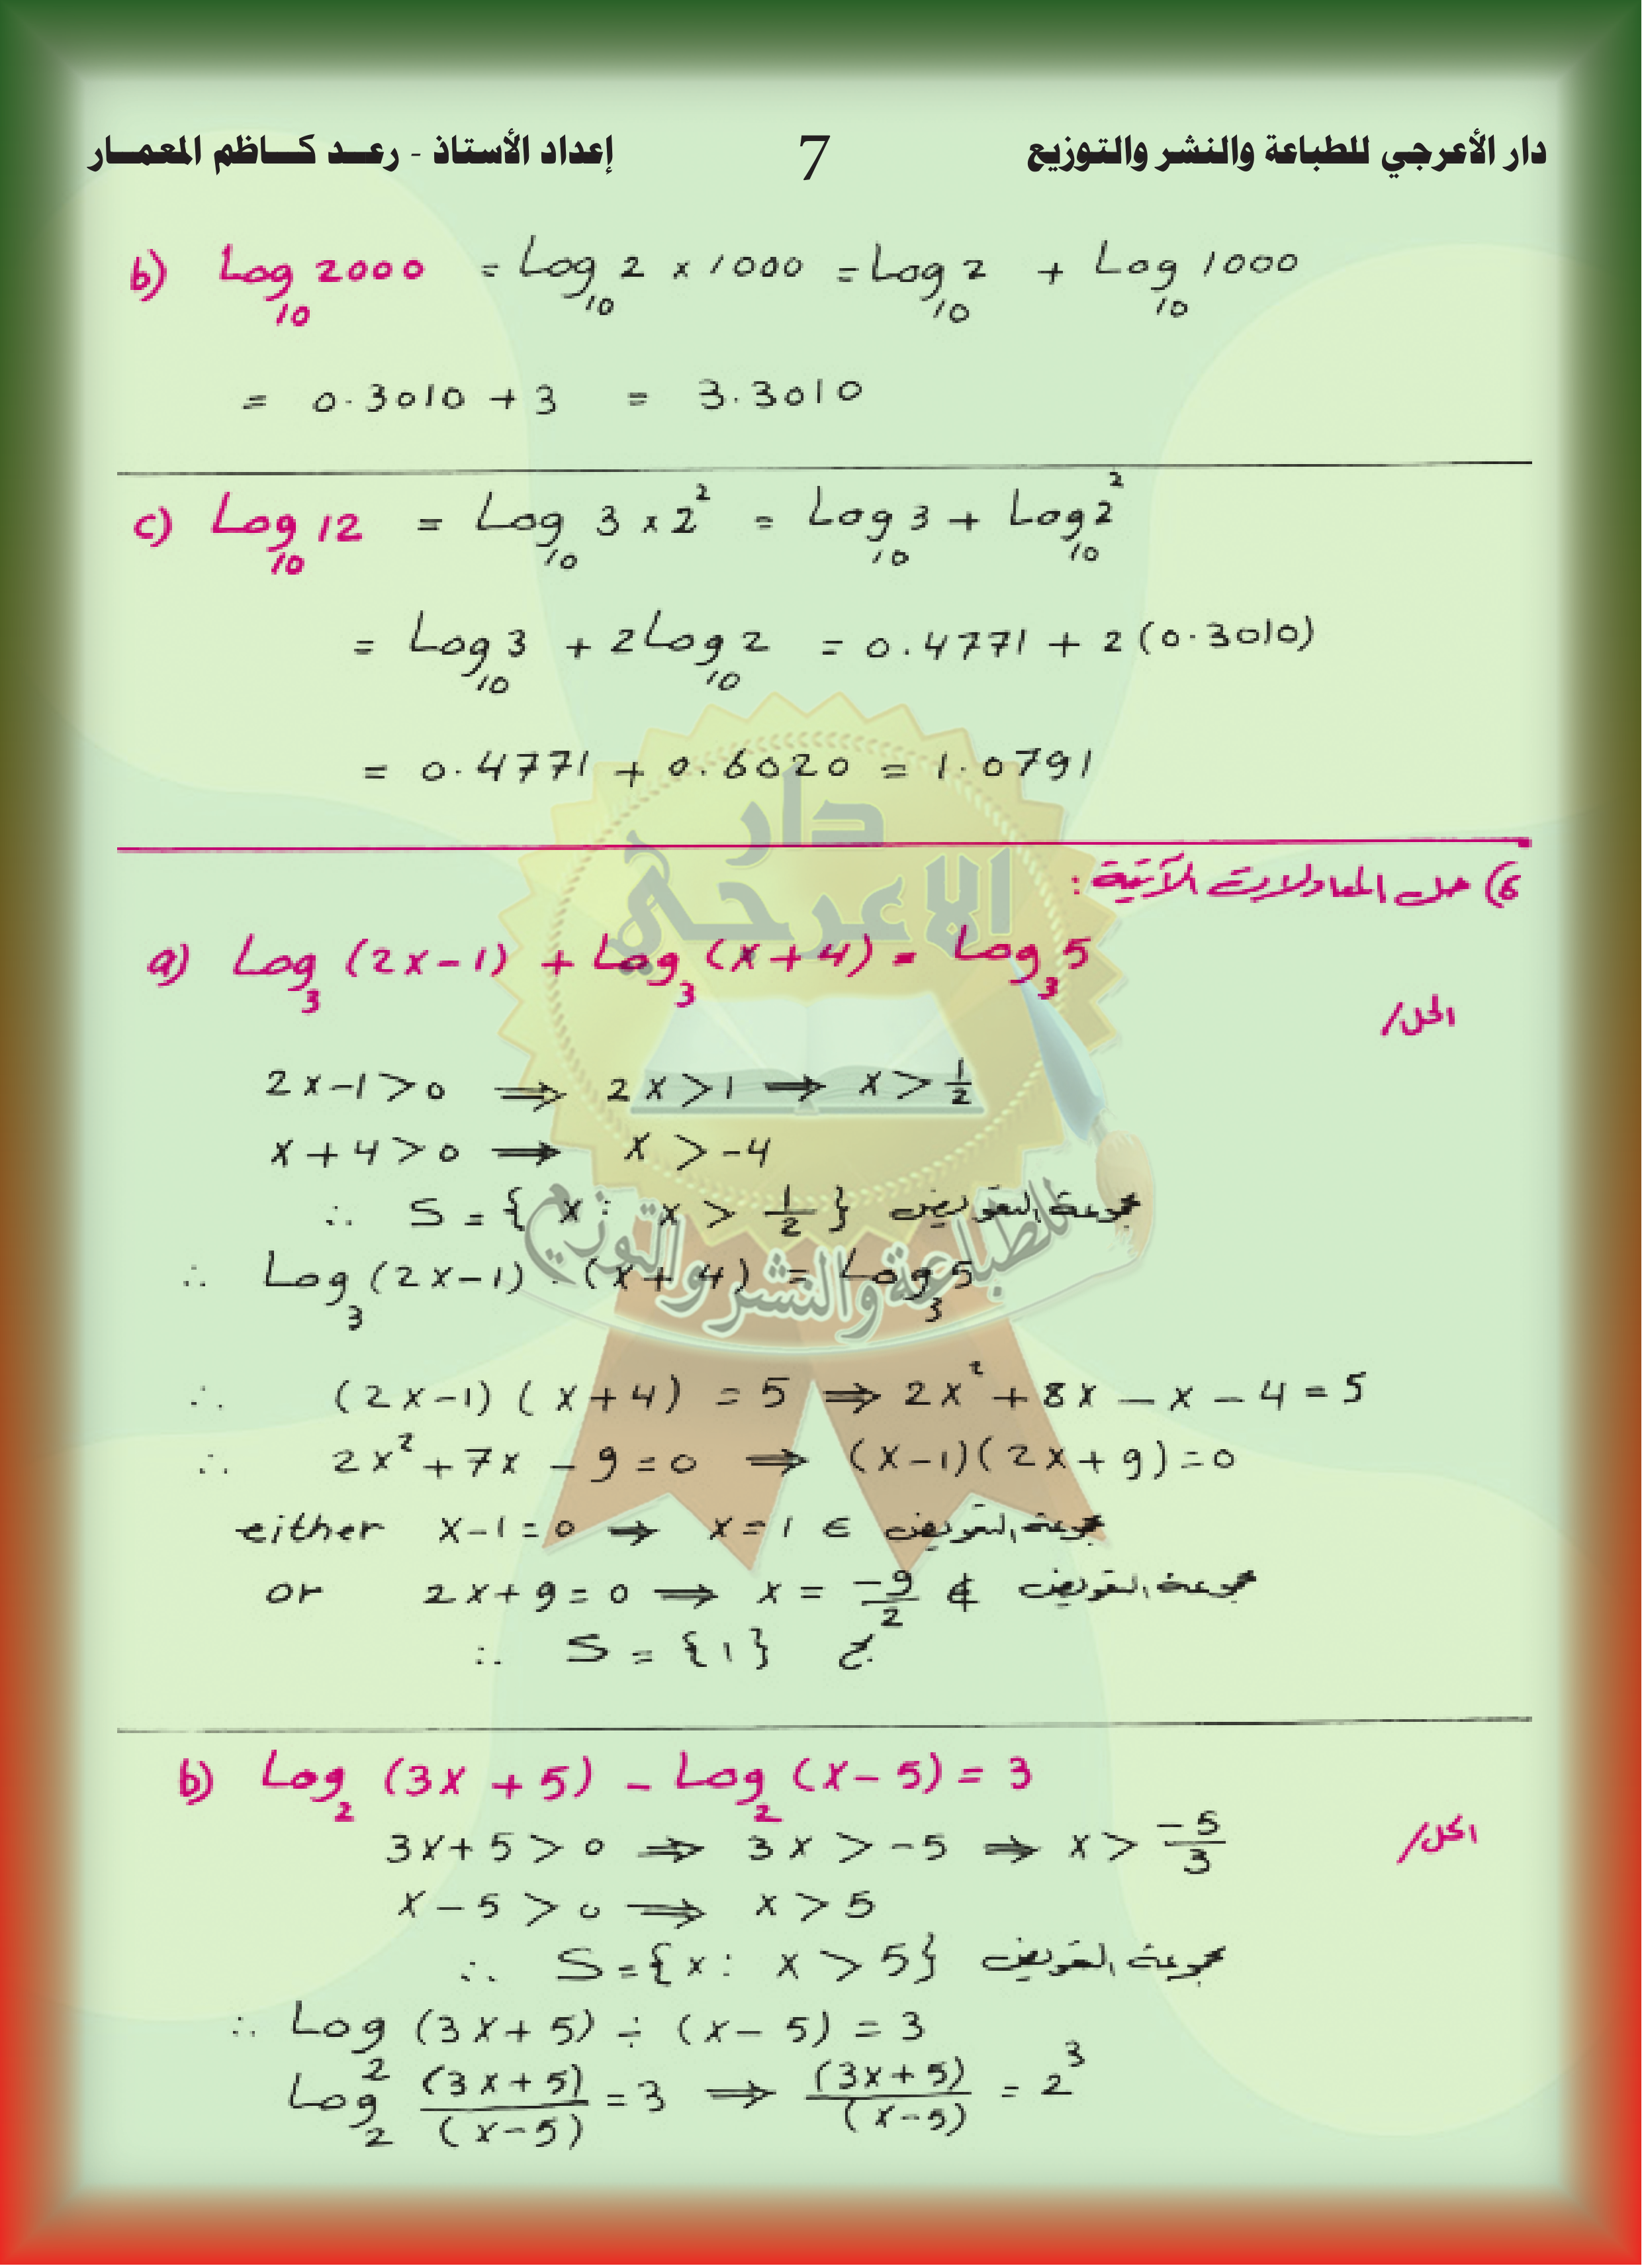 دار الأعرجي للطباعة والنشر والتوزيع 7 إعداد الأستاذ - رعـد كـاظم المعمـار
b) Log₁₀ 2000 = Log₁₀ 2 × 1000 = Log₁₀ 2 + Log₁₀ 1000
= 0.3010 + 3 = 3.3010
c) Log₁₀ 12 = Log₁₀ 3 × 2² = Log₁₀ 3 + Log₁₀ 2²
= Log₁₀ 3 + 2 Log₁₀ 2 = 0.4771 + 2 (0.3010)
= 0.4771 + 0.6020 = 1.0791
دار
الاعرجي
للطباعة والنشر والتوزيع
6) حل المعادلات الآتية :
a) Log₃ (2x-1) + Log₃ (x+4) = Log₃ 5
الحل/
2x-1 > 0 ⟹ 2x > 1 ⟹ x > 1/2
x+4 > 0 ⟹ x > -4
∴ S = { x : x > 1/2 } مجموعة التعويض
∴ Log₃ (2x-1) · (x+4) = Log₃ 5
∴ (2x-1) (x+4) = 5 ⟹ 2x² + 8x - x - 4 = 5
∴ 2x² + 7x - 9 = 0 ⟹ (x-1)(2x+9) = 0
either x-1 = 0 ⟹ x = 1 ∈ مجموعة التعويض
or 2x+9 = 0 ⟹ x = -9/2 ∉ مجموعة التعويض
∴ S = {1} ج
b) Log₂ (3x+5) - Log₂ (x-5) = 3
الحل/
3x+5 > 0 ⟹ 3x > -5 ⟹ x > -5/3
x-5 > 0 ⟹ x > 5
∴ S = {x : x > 5} مجموعة التعويض
∴ Log₂ (3x+5) ÷ (x-5) = 3
Log₂ (3x+5)/(x-5) = 3 ⟹ (3x+5)/(x-5) = 2³